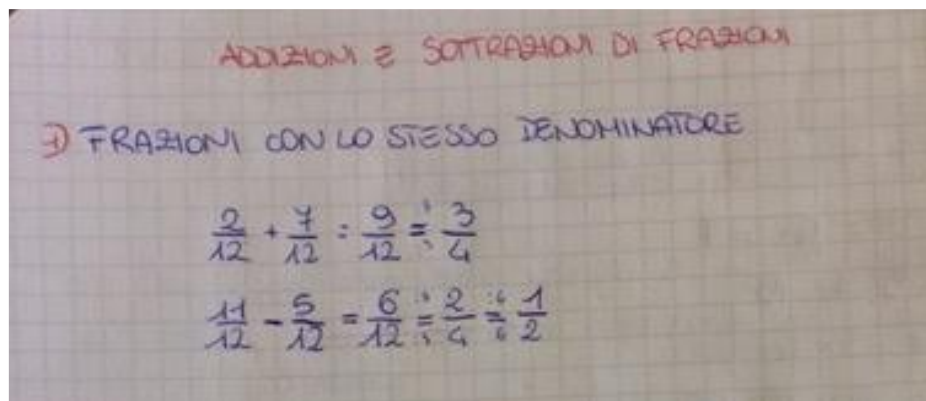 ADDIZIONI E SOTTRAZIONI DI FRAZIONI
1) FRAZIONI CON LO STESSO DENOMINATORE
2/12 + 7/12 = 9/12 = 3/4
11/12 - 5/12 = 6/12 = 2/4 = 1/2